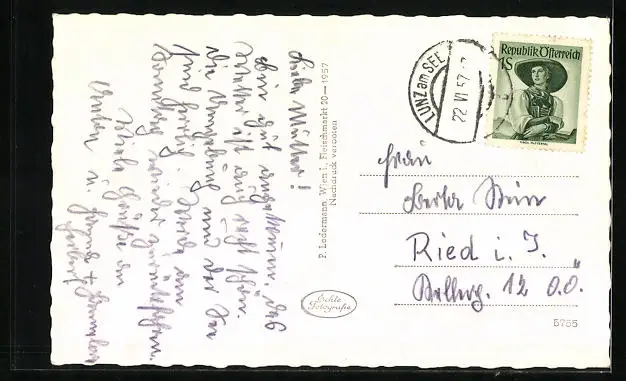 Liebe Mutter!
Bin gut angekommen, das
Wetter ist auch recht schön.
Die Umgebung und der See
sind herrlich. Werde am
Sonntag wieder zurückfahren.
Viele Grüße an
Vater u.
P. Ledermann, Wien I., Fleischmarkt 20 — 1957
Nachdruck verboten
Echte
Fotografie
LUNZ am SEE
22 VI 57
Republik Österreich
1S
Frau
Berta
Ried i. I.
12 O.Ö.
5755